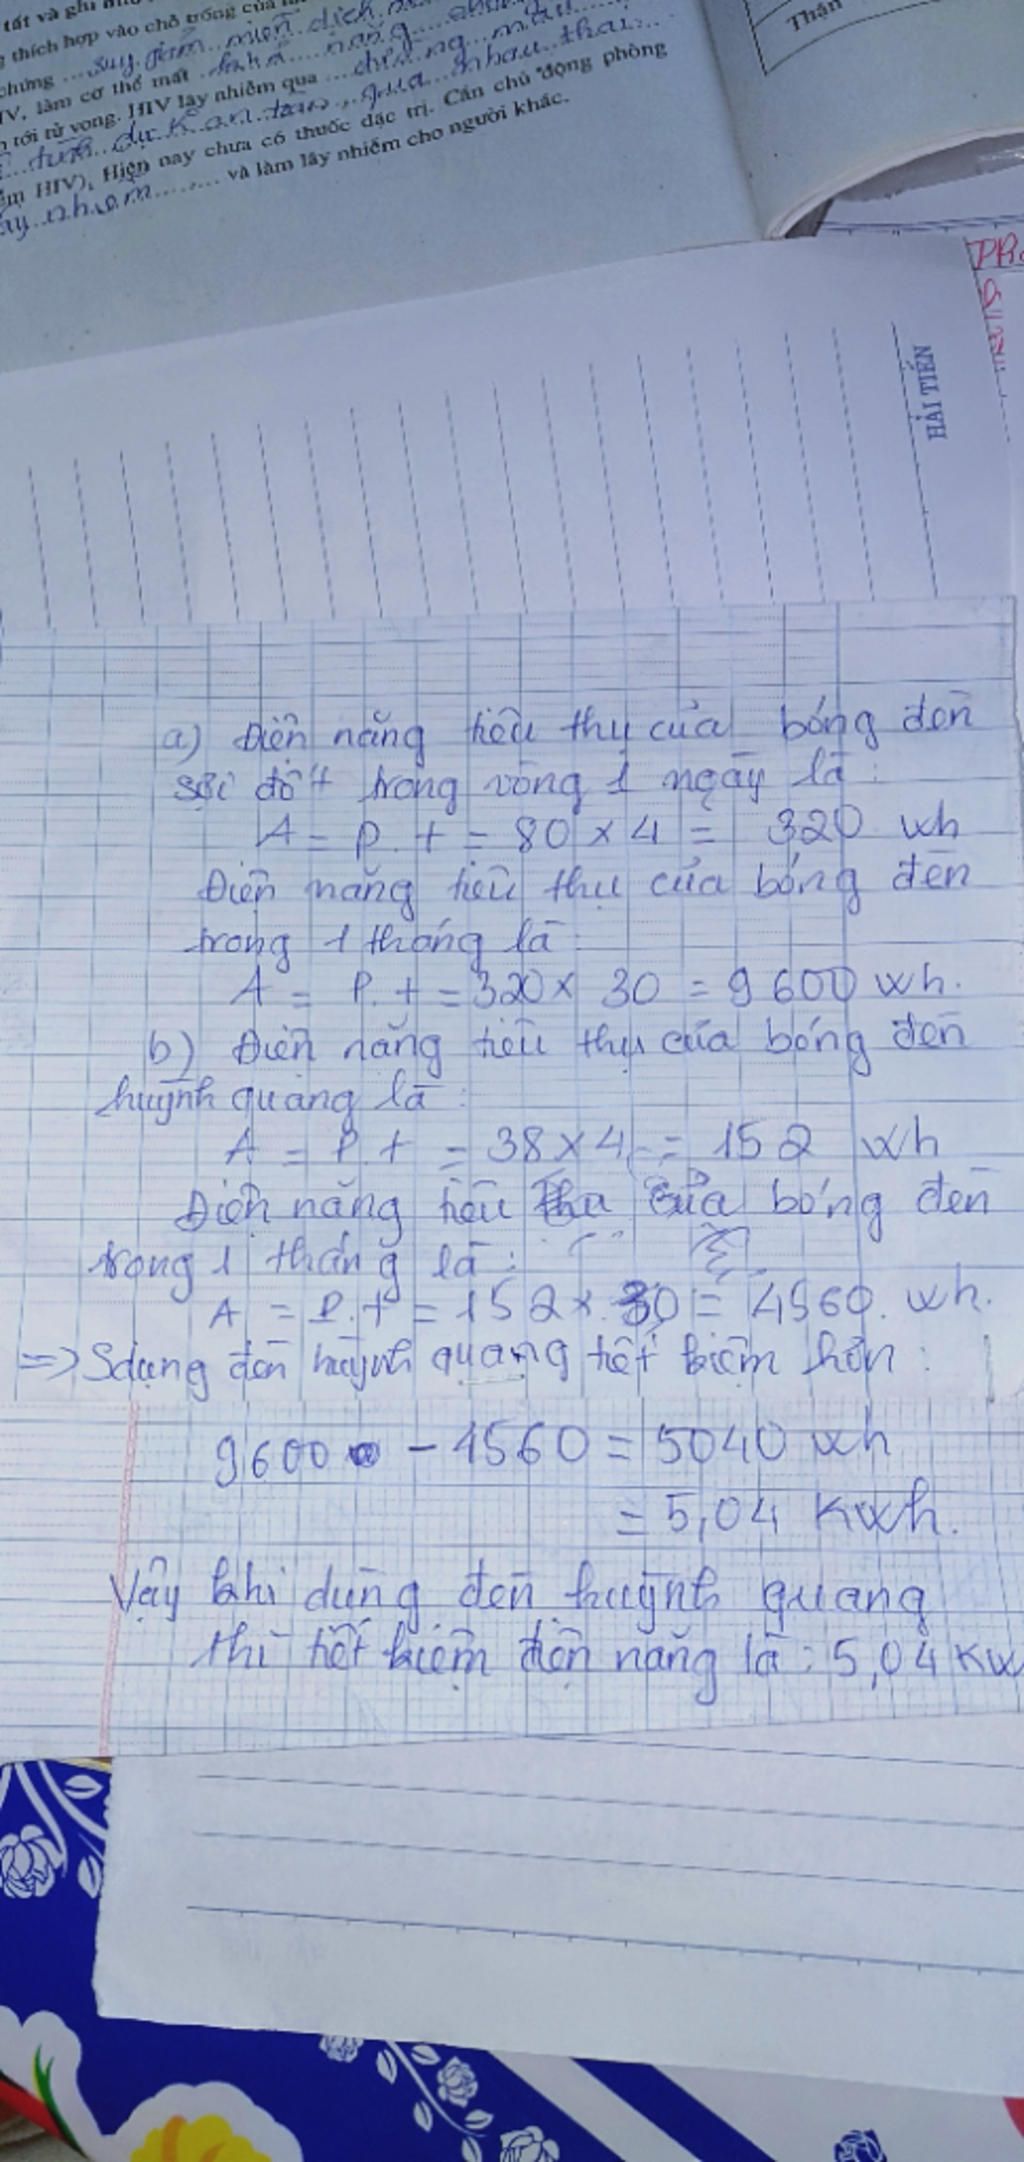 tất và ghi
thích hợp vào chỗ trống của
chứng ... suy giảm miễn dịch
IV, làm cơ thể mất ... khả năng
tới tử vong. HIV lây nhiễm qua ... đường máu
tình dục k an toàn, qua nhau thai
HIV), Hiện nay chưa có thuốc đặc trị. Cần chủ động phòng
nhiễm ........ và làm lây nhiễm cho người khác.
Thận
HẢI TIẾN
a) Điện năng tiêu thụ của bóng đèn
sợi đốt trong vòng 1 ngày là :
A = P . t = 80 x 4 = 320 wh
Điện năng tiêu thụ của bóng đèn
trong 1 tháng là :
A = P. t = 320 x 30 = 9 600 wh.
b) Điện năng tiêu thụ của bóng đèn
huỳnh quang là :
A = P. t = 38 x 4 = 152 wh
Điện năng tiêu thụ của bóng đèn
trong 1 tháng là :
A = P. t = 152 x 30 = 4560. wh.
=> Sdụng đèn huỳnh quang tiết kiệm hơn :
9600 - 4560 = 5040 wh
= 5,04 Kwh.
Vậy khi dùng đèn huỳnh quang
thì tiết kiệm điện năng là : 5,04 Kw